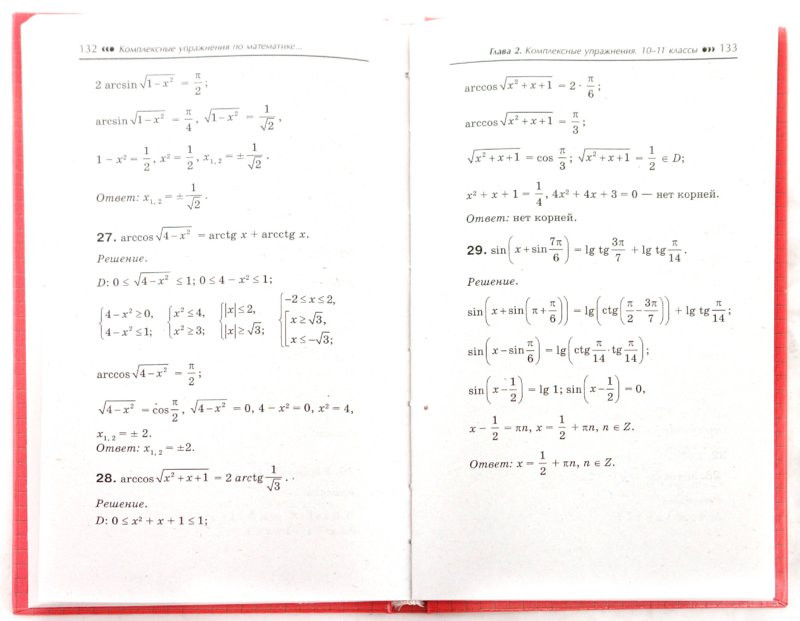 132 ••• Комплексные упражнения по математике...
2 arcsin √(1−x²) = π/2;
arcsin √(1−x²) = π/4, √(1−x²) = 1/√2,
1 − x² = 1/2, x² = 1/2, x₁,₂ = ± 1/√2.
Ответ: x₁,₂ = ± 1/√2.
27. arccos √(4−x²) = arctg x + arcctg x.
Решение.
D: 0 ≤ √(4−x²) ≤ 1; 0 ≤ 4 − x² ≤ 1;
{4−x² ≥ 0, {x² ≤ 4, {|x| ≤ 2, {−2 ≤ x ≤ 2,
{4−x² ≤ 1; {x² ≥ 3; {|x| ≥ √3; [x ≥ √3,
[x ≤ −√3;
arccos √(4−x²) = π/2;
√(4−x²) = cos π/2, √(4−x²) = 0, 4 − x² = 0, x² = 4,
x₁,₂ = ± 2.
Ответ: x₁,₂ = ±2.
28. arccos √(x²+x+1) = 2 arctg 1/√3.
Решение.
D: 0 ≤ x² + x + 1 ≤ 1;
Глава 2. Комплексные упражнения. 10–11 классы ••• 133
arccos √(x²+x+1) = 2 · π/6;
arccos √(x²+x+1) = π/3;
√(x²+x+1) = cos π/3; √(x²+x+1) = 1/2 ∈ D;
x² + x + 1 = 1/4, 4x² + 4x + 3 = 0 — нет корней.
Ответ: нет корней.
29. sin(x + sin 7π/6) = lg tg 3π/7 + lg tg π/14.
Решение.
sin(x + sin(π + π/6)) = lg(ctg(π/2 − 3π/7)) + lg tg π/14;
sin(x − sin π/6) = lg(ctg π/14 · tg π/14);
sin(x − 1/2) = lg 1; sin(x − 1/2) = 0,
x − 1/2 = πn, x = 1/2 + πn, n ∈ Z.
Ответ: x = 1/2 + πn, n ∈ Z.